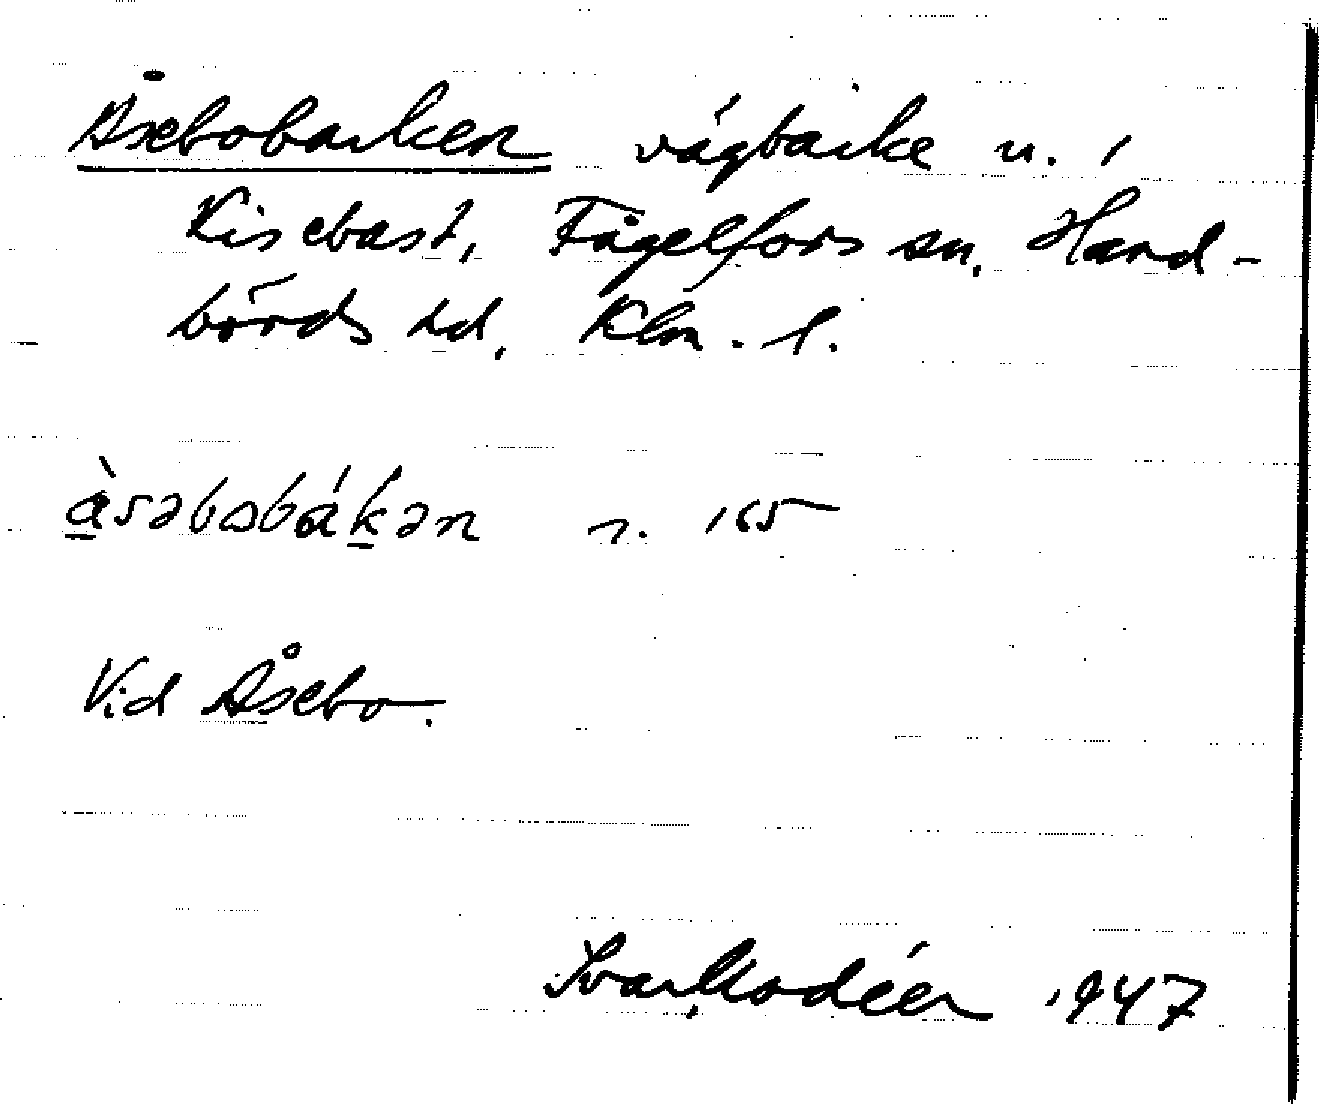 Åsebobacken vägbacke n. i
Kisebast, Fågelfors sn. Hand-
börds hd. Klm. l.
àsəbobákən n. 165
Vid Åsebo.
Ivar Modéer 1947